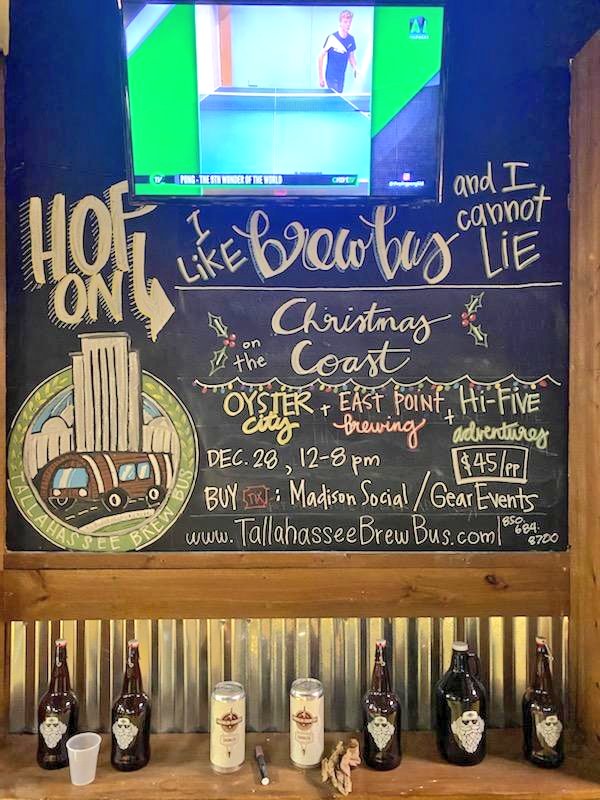 PONG - THE 9TH WONDER OF THE WORLD
HOP
ON
I
LIKE
Brew bus
and I
cannot
LIE
Christmas
on
the
Coast
OYSTER + EAST POINT + Hi-FIVE
city brewing adventures
DEC. 28, 12-8 pm
$45/PP
BUY TIX: Madison Social / Gear Events
www.TallahasseeBrewBus.com
850
684.
8700
TALLAHASSEE BREW BUS